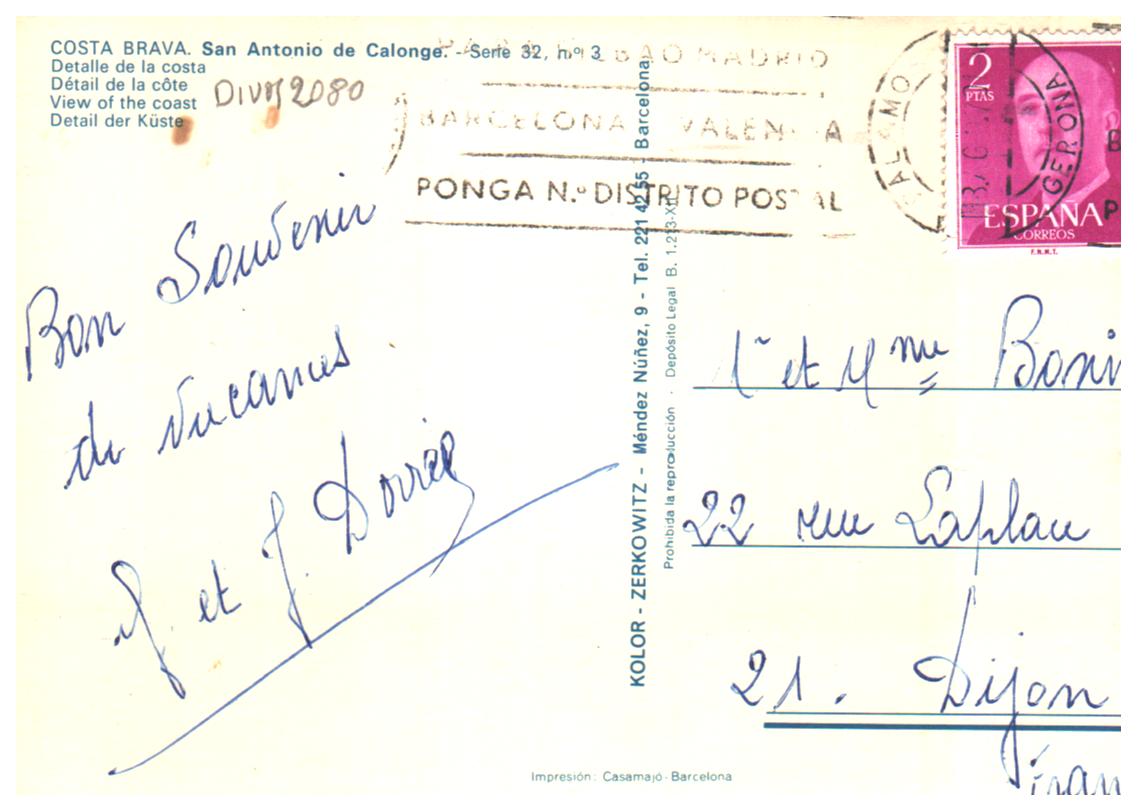 COSTA BRAVA. San Antonio de Calonge. - Serie 32, n.º 3
Detalle de la costa
Détail de la côte
View of the coast
Detail der Küste
2080
BAO MADRID
BARCELONA VALEN A
PONGA N.º DISTRITO POSTAL
ALAMO
GERONA
2
PTAS
ESPAÑA
CORREOS
F.N.M.T.
Bon Souvenir
de vacances
et J.
KOLOR - ZERKOWITZ - Méndez Núñez, 9 - Tel. 221 42 55 - Barcelona
Prohibida la reproducción · Depósito Legal B. 1.213-X
et Mme Boni
22 rue Laplau
21. Dijon
Fran
Impresión: Casamajó - Barcelona